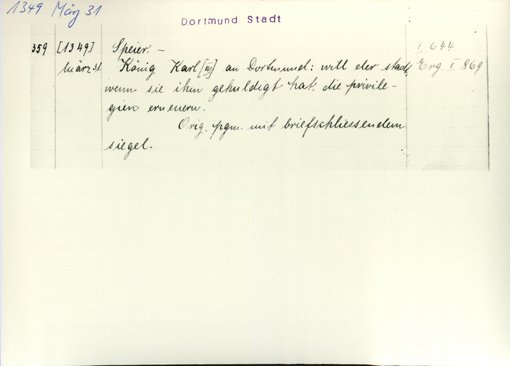 1349 März 31
Dortmund Stadt
359 [1349] Speier. – I 644
März 31. König Karl [IV] an Dortmund: will der stadt, Erg. I 869
wenn sie ihm gehuldigt hat, die privile-
gien erneuern.
Orig. pgm. mit briefschliessendem
siegel.